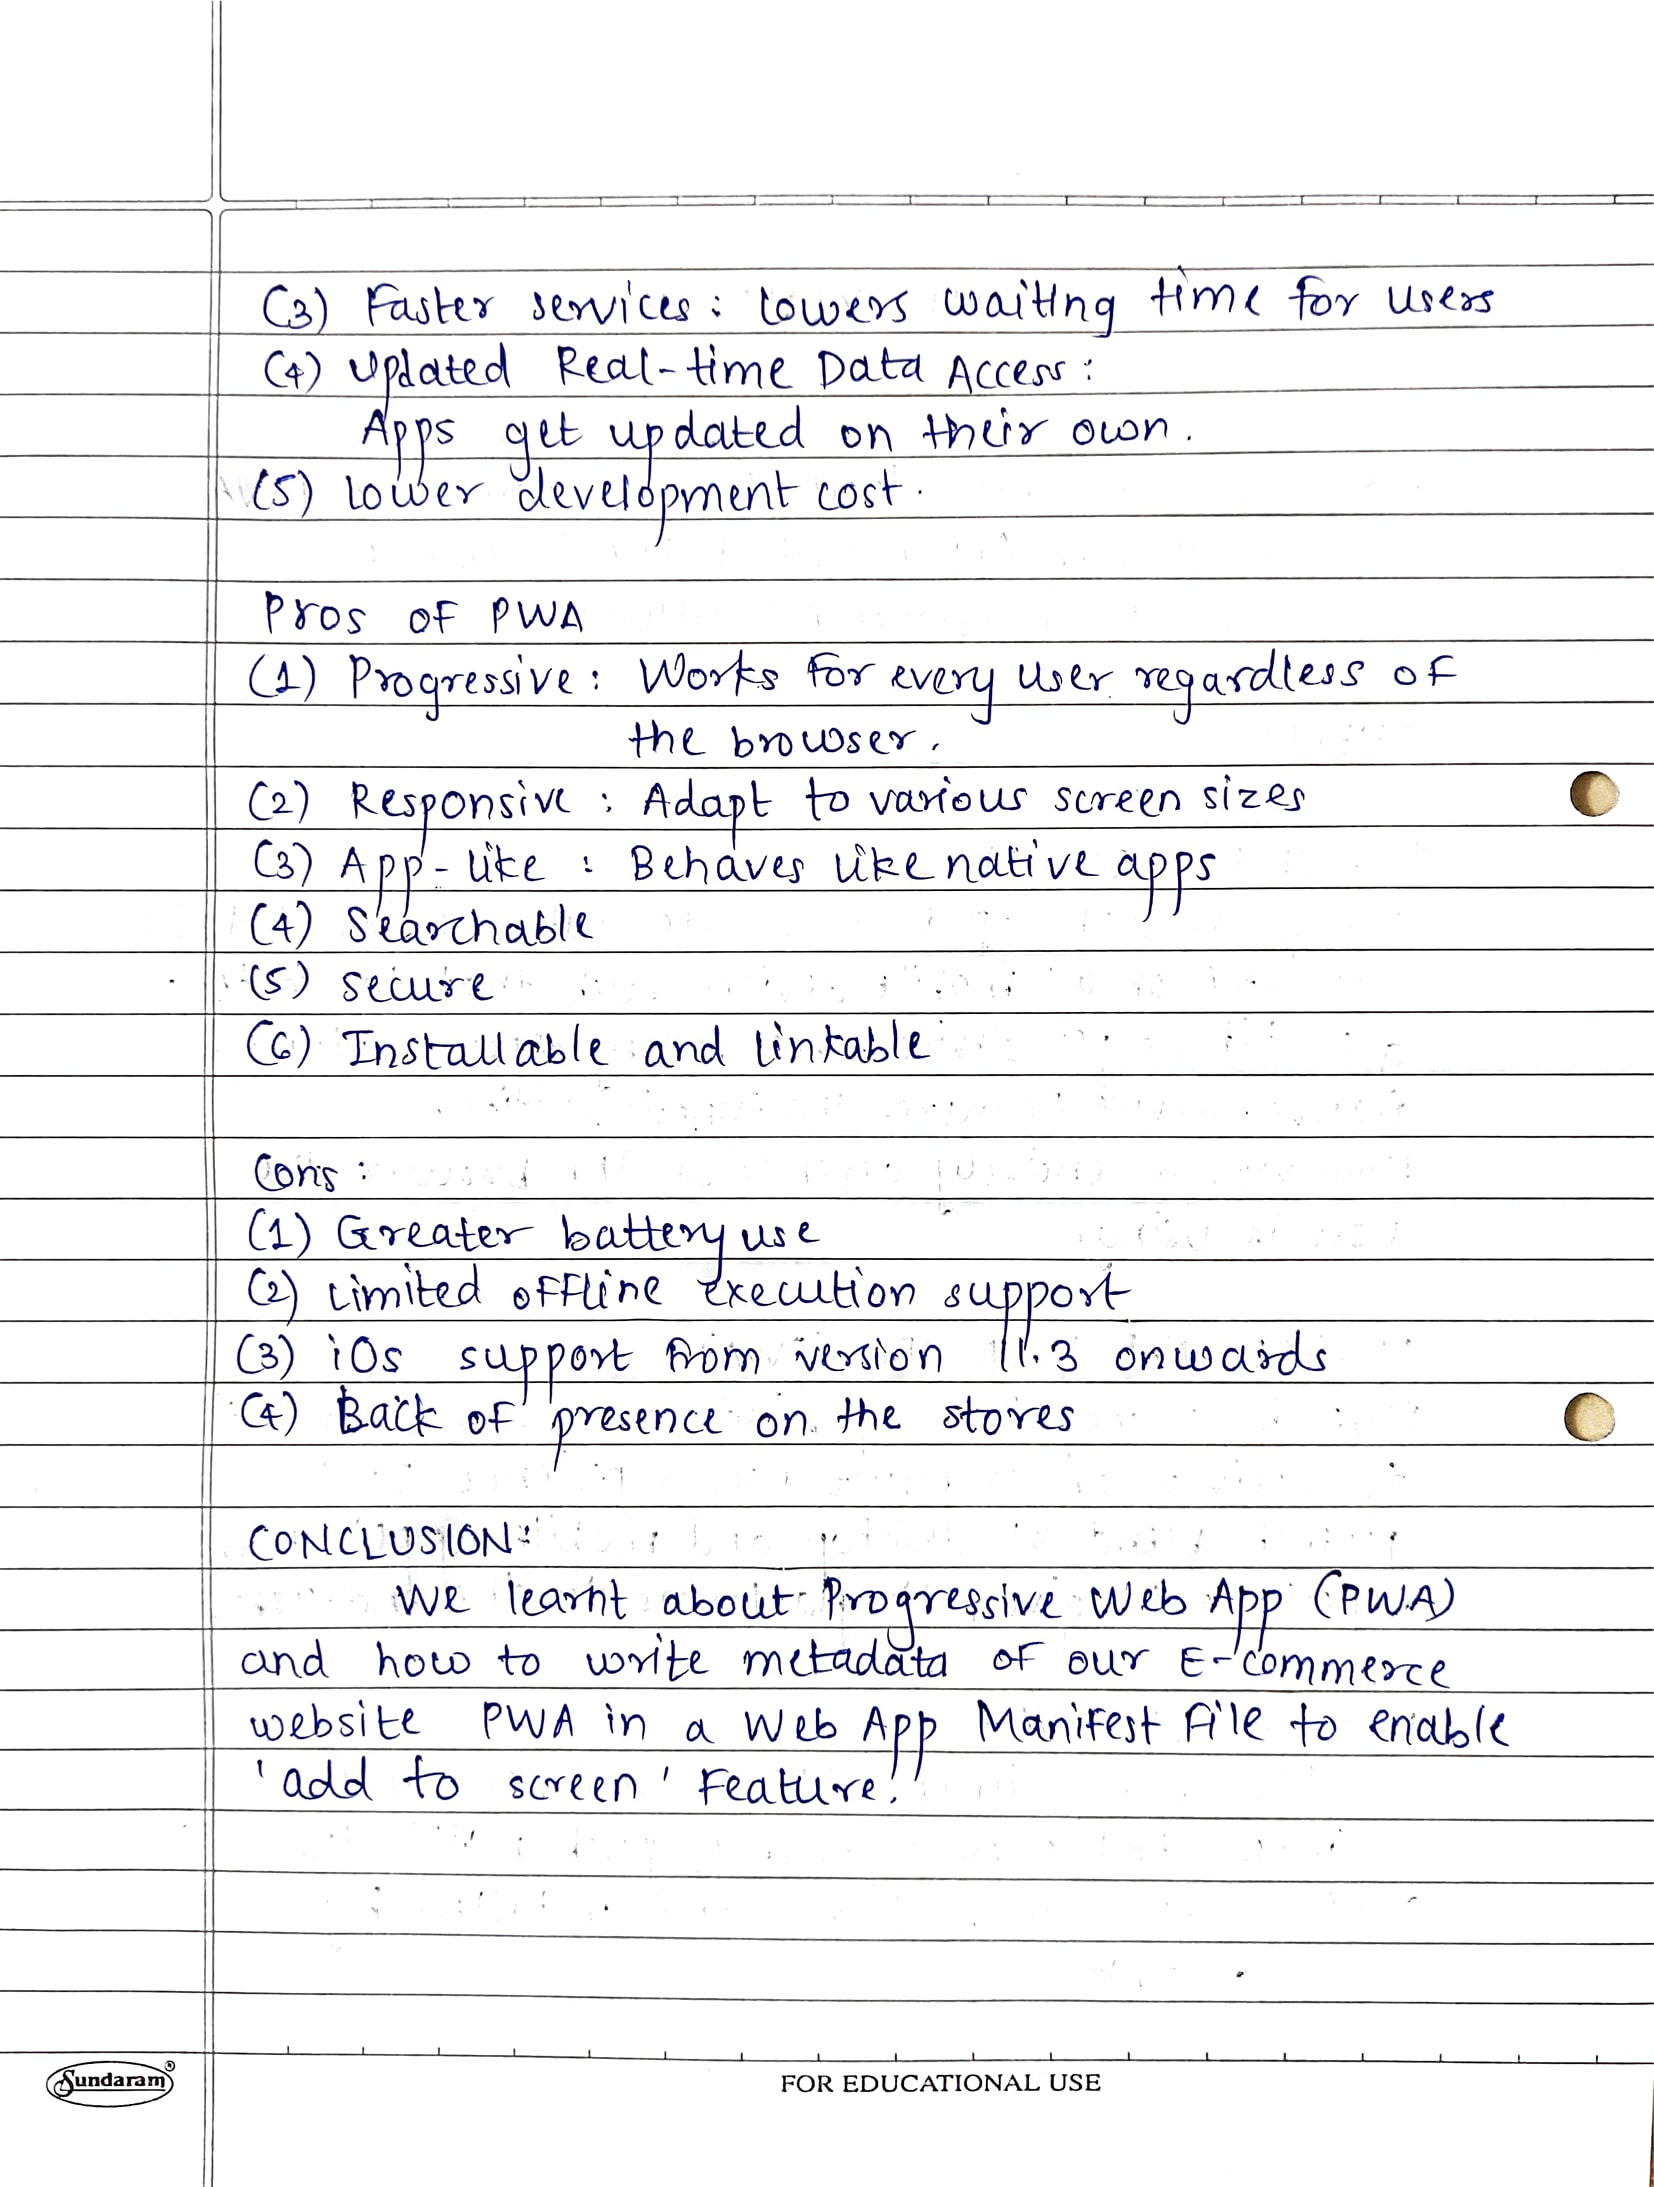 (3) Faster services: lowers waiting time for users
(4) Updated Real-time Data Access:
Apps get updated on their own.
(5) lower development cost.
Pros of PWA
(1) Progressive: Works for every user regardless of
the browser.
(2) Responsive: Adapt to various screen sizes
(3) App-like: Behaves like native apps
(4) Searchable
(5) secure
(6) Installable and linkable
Cons:
(1) Greater battery use
(2) Limited offline execution support
(3) iOs support from version 11.3 onwards
(4) Back of presence on the stores
CONCLUSION:
We learnt about Progressive Web App (PWA)
and how to write metadata of our E-commerce
website PWA in a Web App Manifest file to enable
'add to screen' feature.
Sundaram®
FOR EDUCATIONAL USE